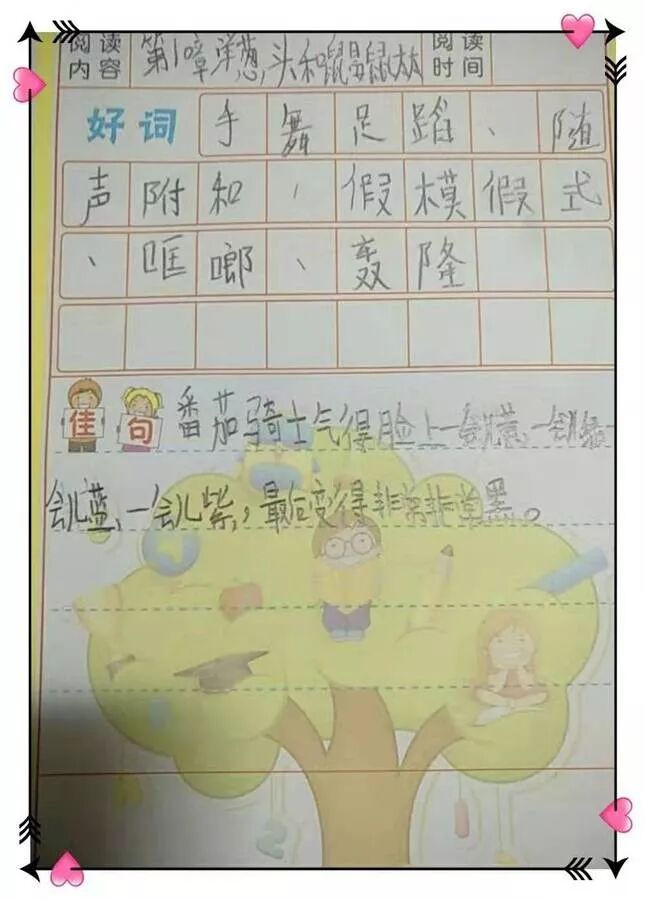 阅读内容 第1章洋葱,头和鼹鼠 阅读时间
好词 手舞足蹈、随
声附和、假模假式
、哐啷、轰隆
佳句 番茄骑士气得脸上一会儿 一会儿 一
会儿蓝、一会儿紫,最后变得非常非常黑。